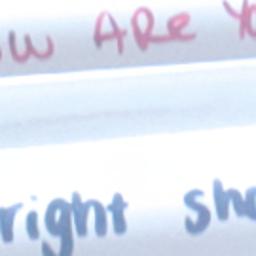 ow ARe Yo
right sho